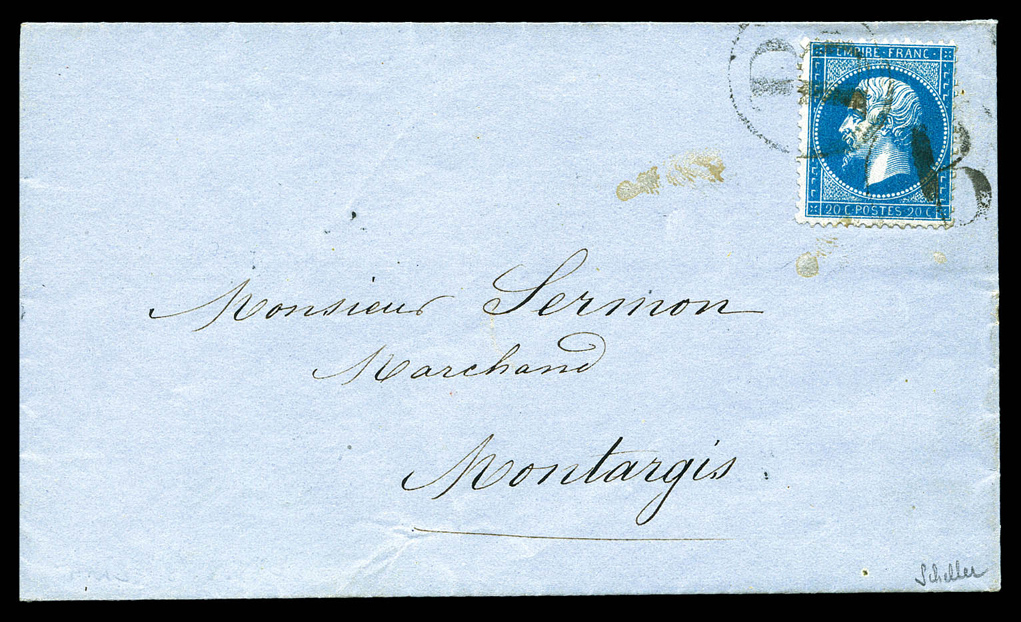 EMPIRE · FRANC ·
20 C · POSTES · 20 C
Monsieur Sermon
Marchand
Montargis
Scheller